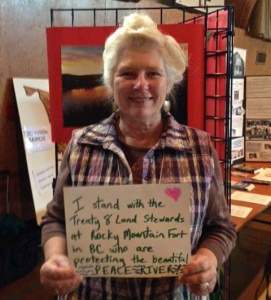 I stand with the
Treaty 8 Land Stewards
at Rocky Mountain Fort
in BC who are
protecting the beautiful
PEACE RIVER